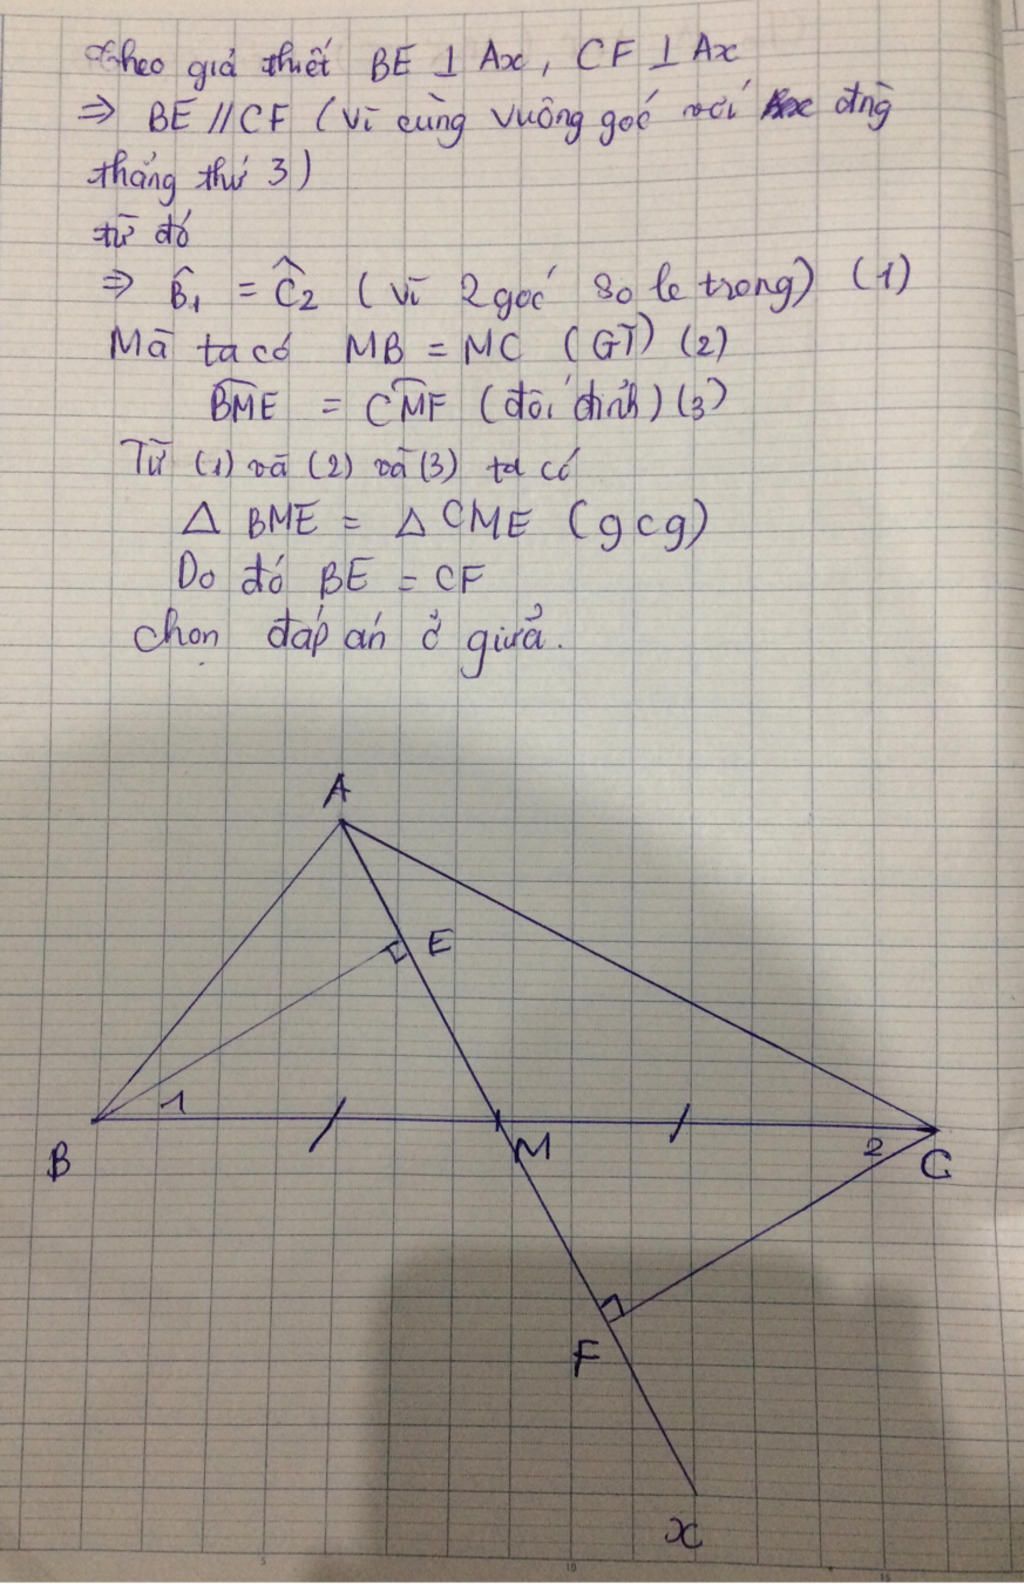 Theo giả thiết BE ⊥ Ax, CF ⊥ Ax
⇒ BE // CF (vì cùng vuông góc với đng
thẳng thứ 3)
từ đó
⇒ B̂₁ = Ĉ₂ (vì 2 góc so le trong) (1)
Mà ta có MB = MC (GT) (2)
BME = CMF (đối đỉnh) (3)
Từ (1) và (2) và (3) ta có
△ BME = △ CME (gcg)
Do đó BE = CF
chọn đáp án ở giửả.
A
E
1
B
M
2
C
F
x
5
10
15